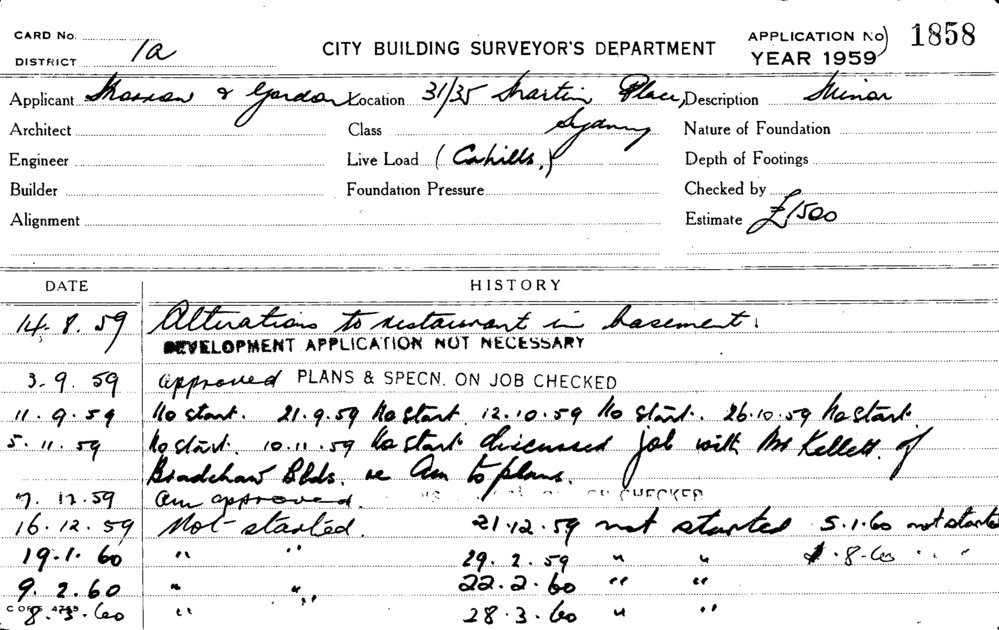 CARD No.
DISTRICT 1a
CITY BUILDING SURVEYOR'S DEPARTMENT
APPLICATION No) 1858
YEAR 1959
Applicant & Gordon Location 31/35 Martin Place, Description Minor
Architect Class Sydney Nature of Foundation
Engineer Live Load (Cahills.) Depth of Footings
Builder Foundation Pressure Checked by
Alignment Estimate £1500
DATE HISTORY
14. 8. 59 Alterations to restaurant in basement.
DEVELOPMENT APPLICATION NOT NECESSARY
3. 9. 59 approved PLANS & SPECN. ON JOB CHECKED
11. 9. 59 No start. 21.9.59 No start 12.10.59 No start. 26.10.59 No start.
5. 11. 59 No start. 10.11.59 No start discussed job with Mr Kellett. of
Bradshaw Blds. re Am to plans.
7. 12. 59 am approved. CHECKED
16. 12. 59 Not started. 21.12.59 not started 5.1.60 not started
19. 1. 60 " " 29. 2. 59 " " 8.60 " "
9. 2. 60 " " 22.2.60 " "
8. 3. 60 " " 28.3.60 " "